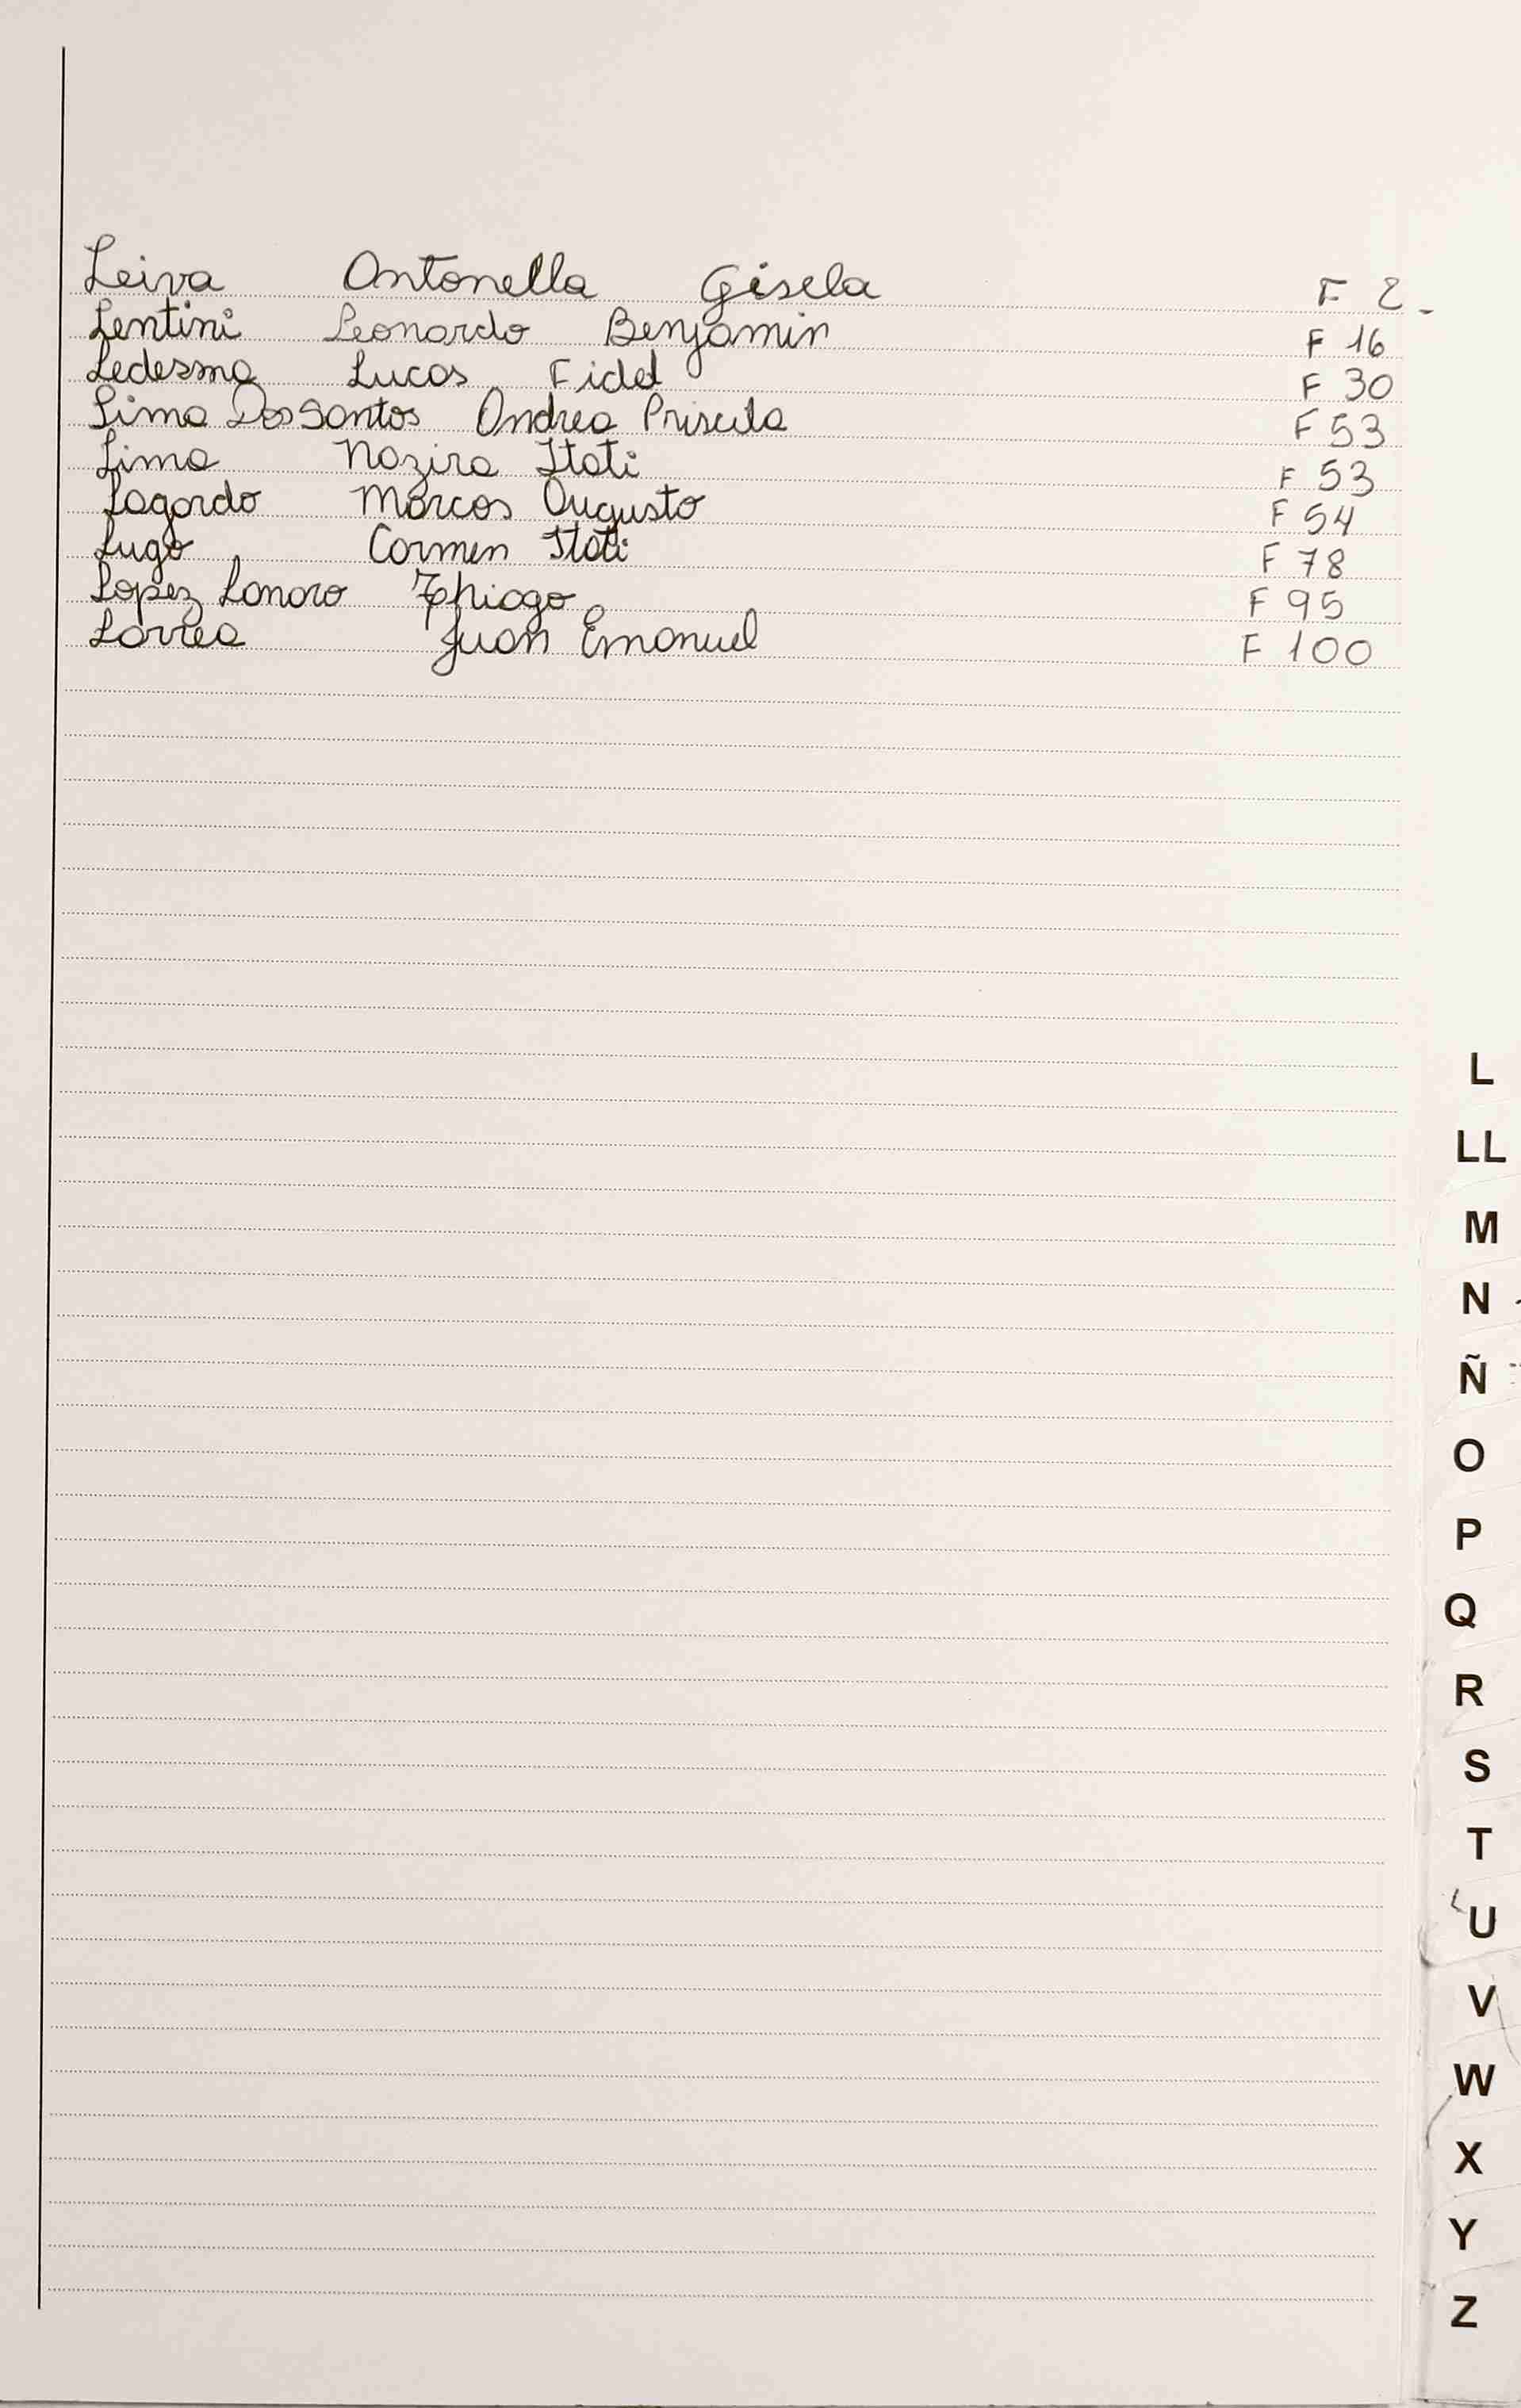 Leiva Antonella Gisela F 2-
Lentini Leonardo Benjamin F 16
Ledesma Lucas Fidel F 30
Lima Dos Santos Andrea Priscila F 53
Lima Nazira Itati F 53
Lagardo Marcos Augusto F 54
Lugo Carmen Itati F 78
Lopez Lanaro Thiago F 95
Larrea Juan Emanuel F 100
L
LL
M
N
Ñ
O
P
Q
R
S
T
U
V
W
X
Y
Z